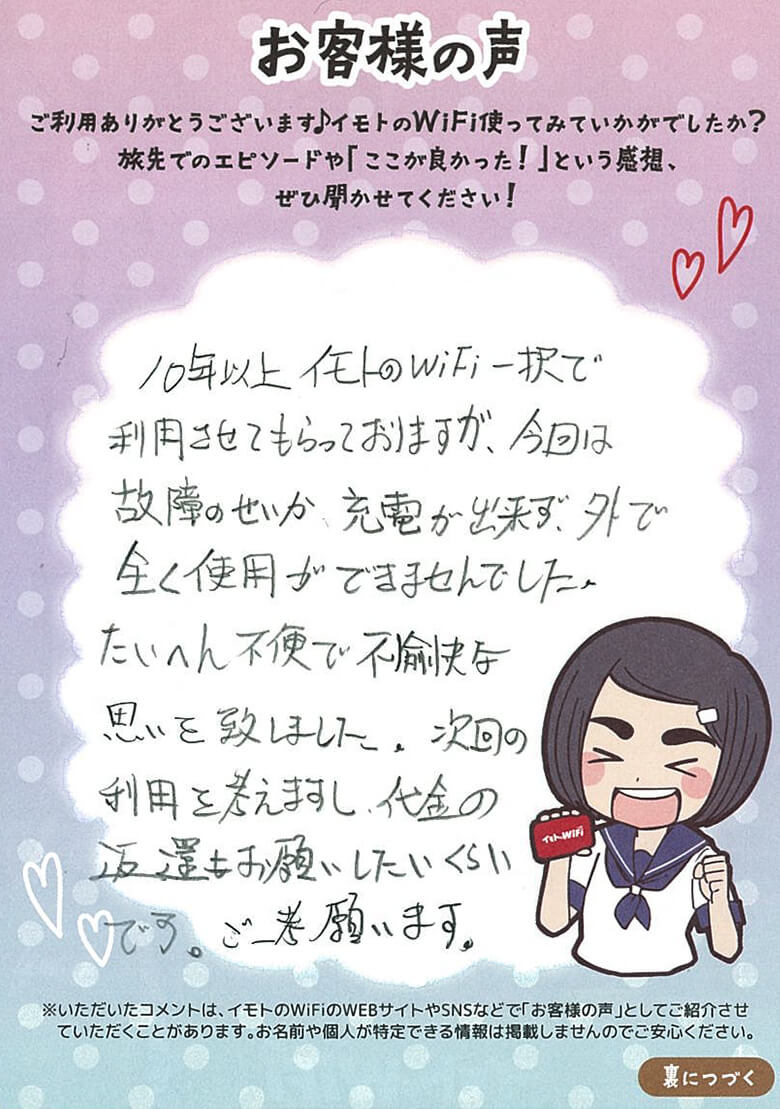 お客様の声
ご利用ありがとうございます♪イモトのWiFi使ってみていかがでしたか?
旅先でのエピソードや「ここが良かった!」という感想、
ぜひ聞かせてください!
10年以上イモトのWiFi一択で
利用させてもらっておりますが、今回は
故障のせいか、充電が出来ず、外で
全く使用ができませんでした。
たいへん不便で不愉快な
思いを致しました。次回の
利用を考えますし、代金の
返還もお願いしたいくらい
です。ご一考願います。
イモトのWiFi
※いただいたコメントは、イモトのWiFiのWEBサイトやSNSなどで「お客様の声」としてご紹介させ
ていただくことがあります。お名前や個人が特定できる情報は掲載しませんのでご安心ください。
裏につづく